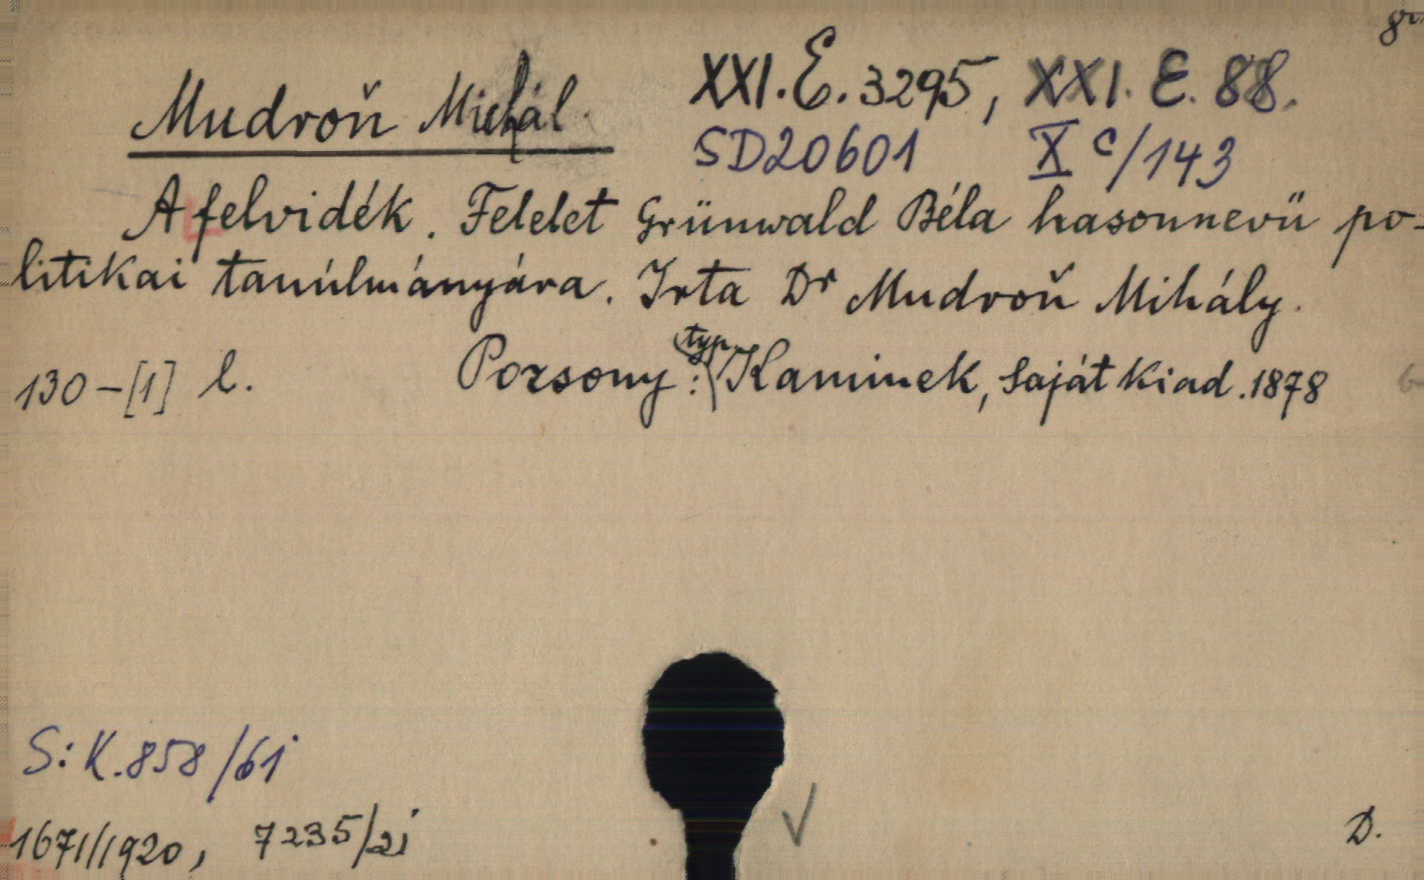 8°
Mudroň Michal. XXI.E.3295, XXI.E.88.
SD20601 X c/143
A felvidék. Felelet Grünwald Béla hasonnevü po-
litikai tanúlmányára. Irta Dr Mudroň Mihály.
130-[1] l. Pozsony: (typ. Kaminek, Saját kiad. 1878
S: K.858/61
1671/1920, 7235/2i
D.